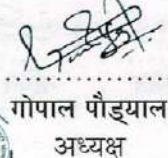 गोपाल पौड्याल
अध्यक्ष